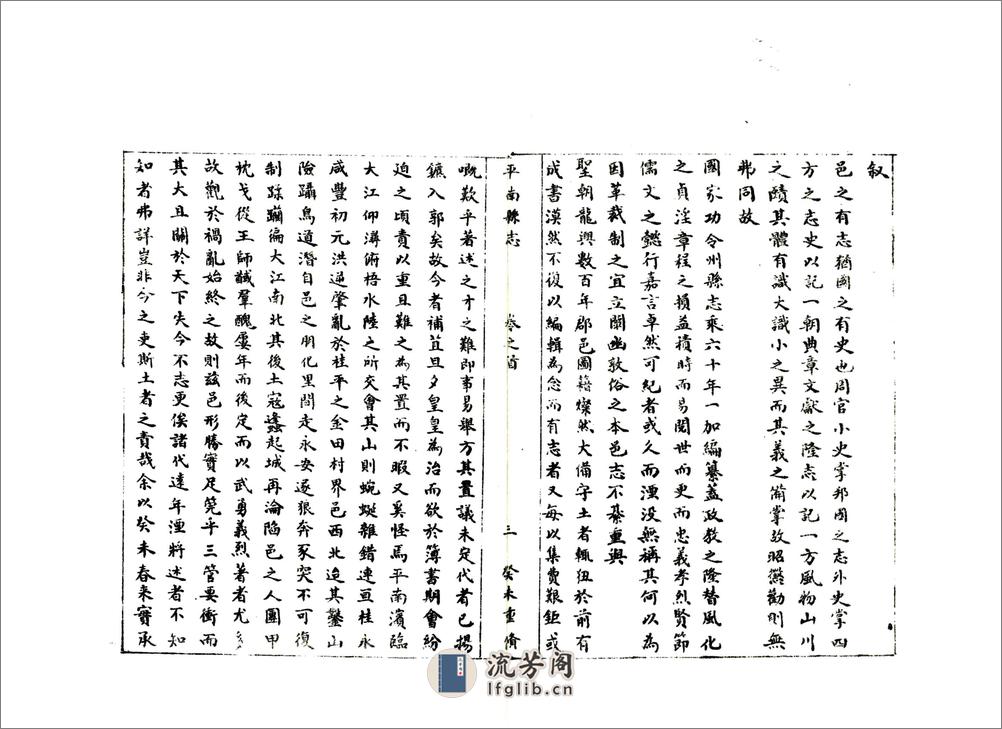 叙
邑之有志猶國之有史也周官小史掌邦國之志外史掌四
方之志史以記一朝典章文獻之隆志以記一方風物山川
之賾其體有識大識小之異而其義之備掌故昭懲勸則無
弗同故
國家功令州縣志乘六十年一加編纂蓋政教之隆替風化
之貞淫章程之損益積時而易閱世而更而忠義孝烈賢節
儒文之懿行嘉言卓然可紀者或久而湮沒無稱其何以為
因革裁制之宜立闡幽敦俗之本邑志不綦重與
聖朝龍興數百年郡邑圖籍燦然大備字土者輒狃於前有
成書漠然不復以編輯為念而有志者又每以集費艱鉅或
平南縣志
卷之首
三
癸未重脩
嘅歎乎著述之才之難即事易舉方其置議未定代者已揚
鑣入郭矣故今者補苴旦夕皇皇為治而欲於簿書期會紛
迫之頃責以重且難之為其置而不暇又奚怪焉平南濱臨
大江仰溯術梧水陸之所交會其山則蜿蜒雜錯連亘桂永
咸豐初元洪逆肇亂於桂平之金田村界邑西北迨其鑿山
險躡鳥道潛自邑之朋化里間走永安遂狼奔豕突不可復
制踪躪徧大江南北其後土寇蠭起城再淪陷邑之人團甲
枕戈從王師馘羣醜屢年而後定而以武勇義烈著者尤多
故觀於禍亂始終之故則兹邑形勝實足筦乎三管要衝而
其大且關於天下失今不志更俟諸代遠年湮將述者不知
知者弗詳豈非今之吏斯土者之責哉余以癸未春來實承
流芳阁
lfglib.cn